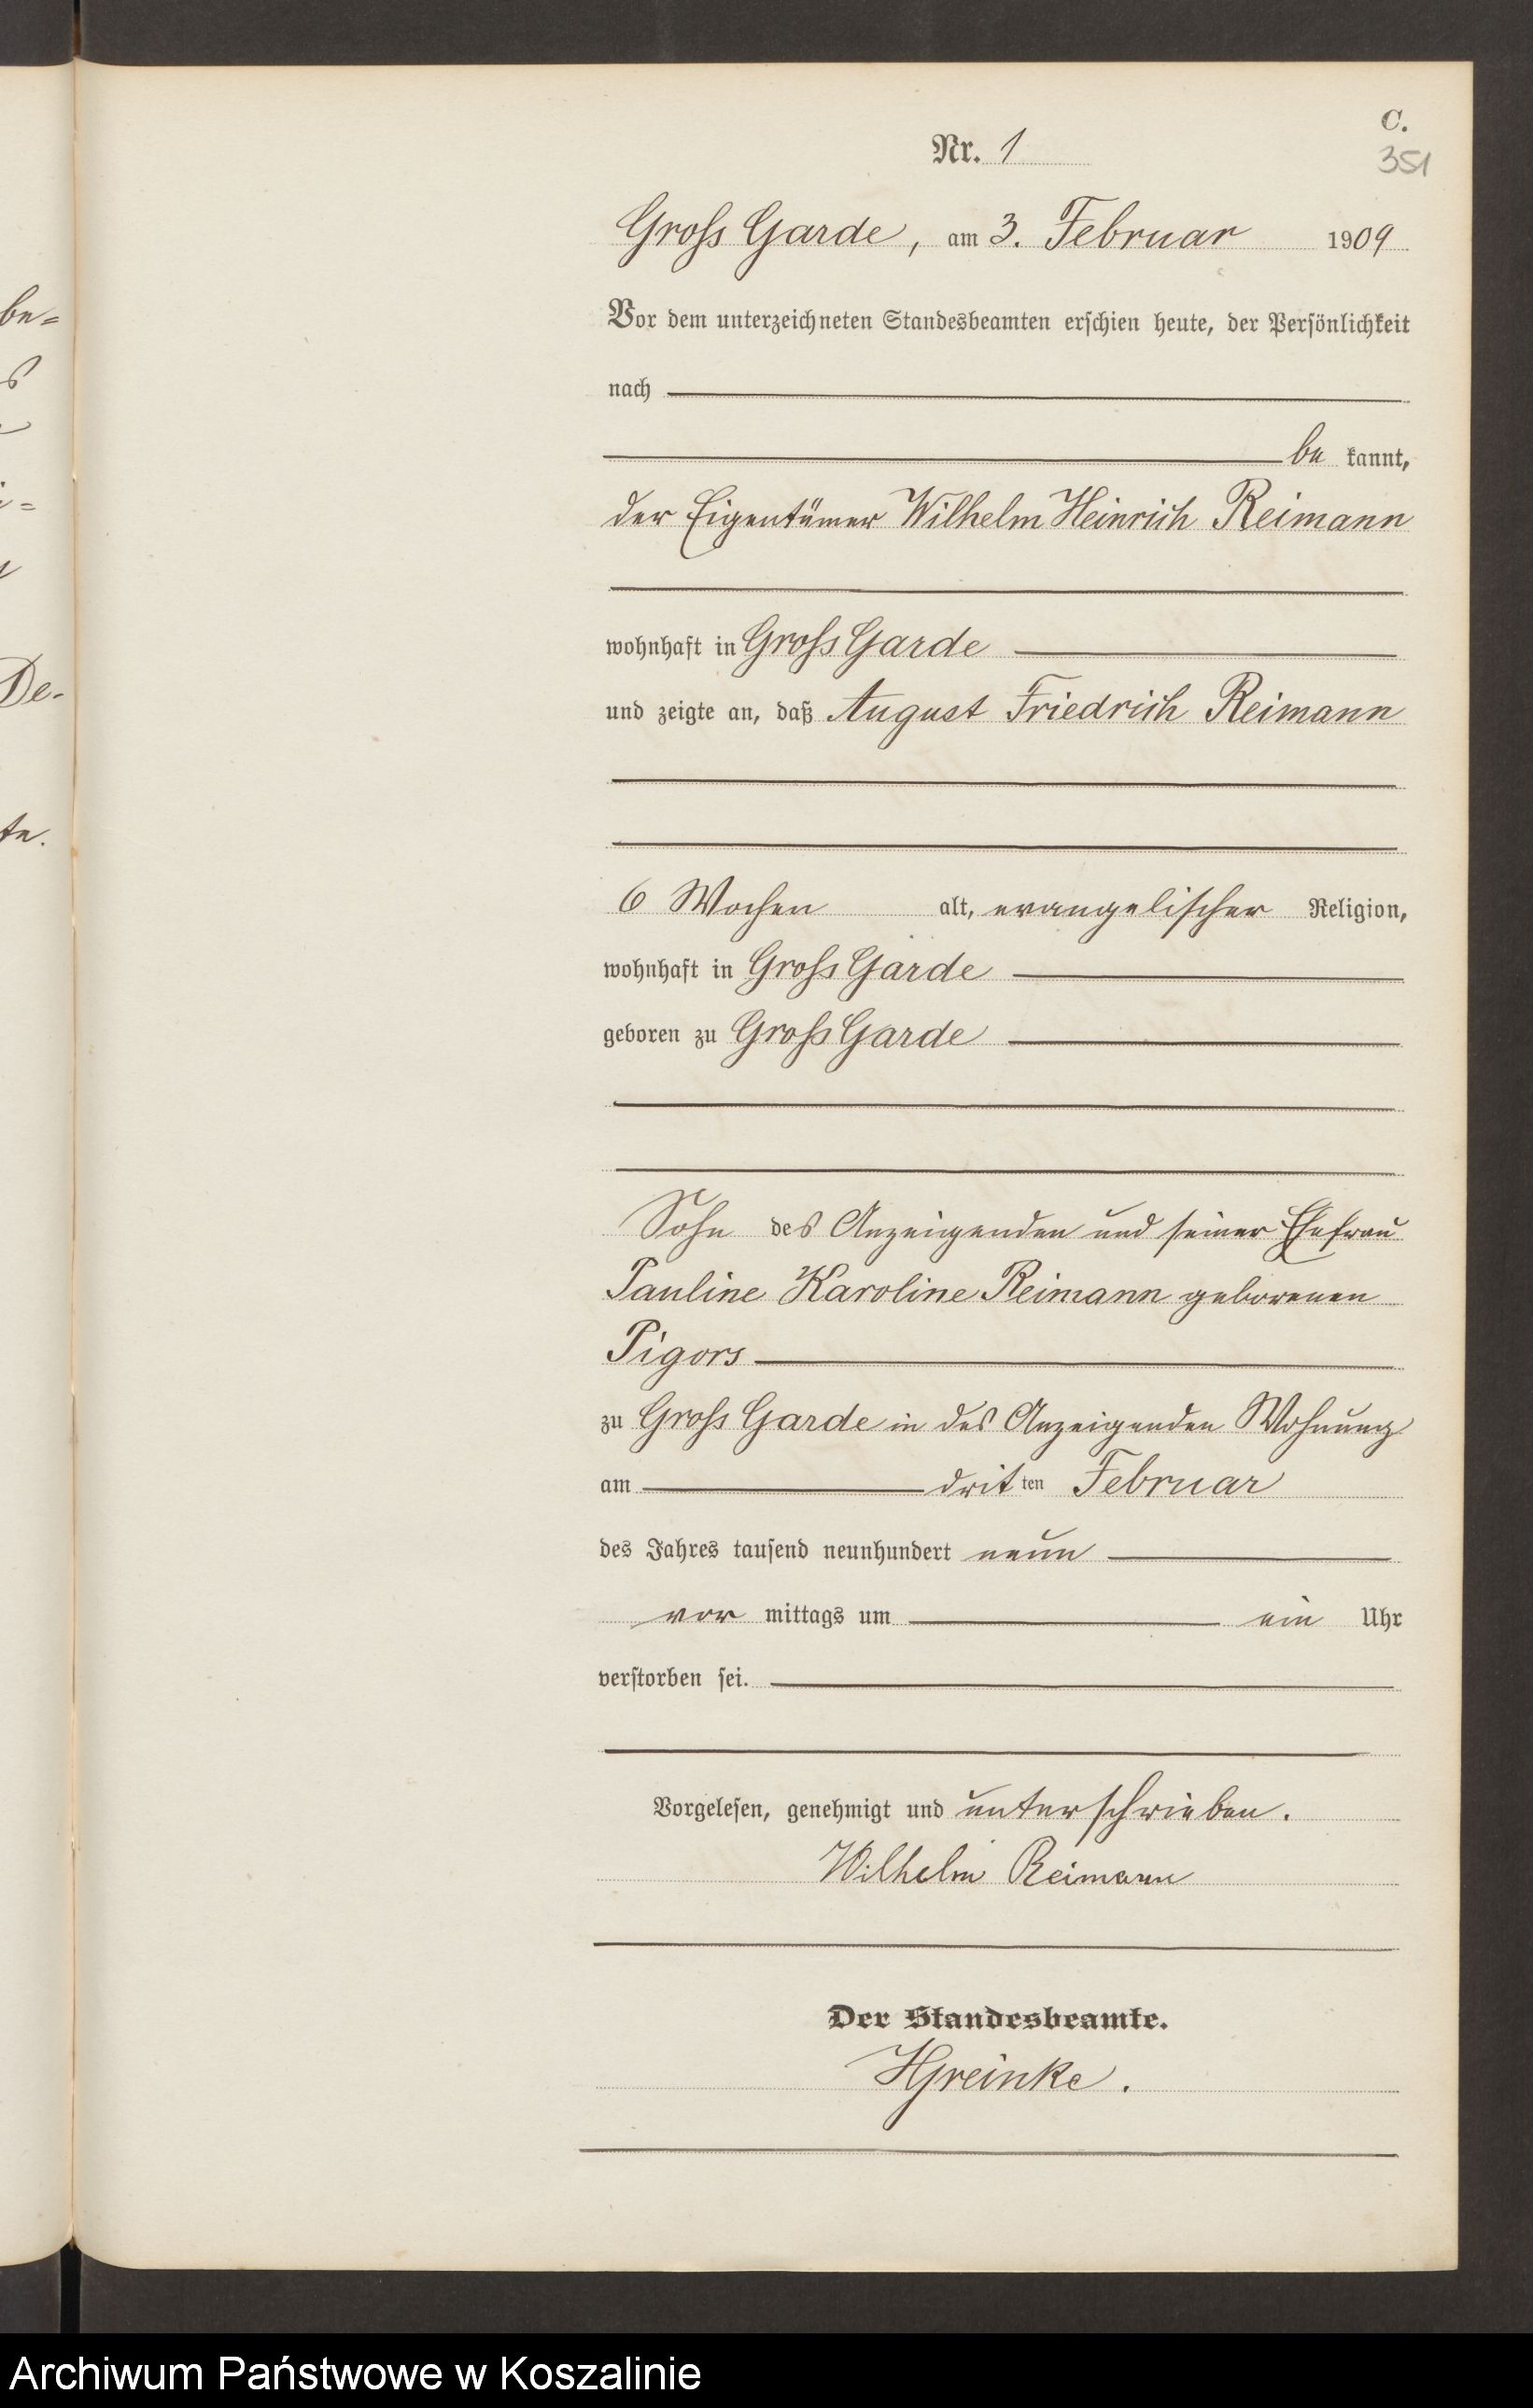 C.
Nr. 1
351
Gross Garde, am 3. Februar 1909
Vor dem unterzeichneten Standesbeamten erschien heute, der Persönlichkeit
nach
be kannt,
der Eigentümer Wilhelm Heinrich Reimann
wohnhaft in Gross Garde
und zeigte an, daß August Friedrich Reimann
6 Wochen alt, evangelischer Religion,
wohnhaft in Gross Garde
geboren zu Gross Garde
Sohn des Anzeigenden und seiner Ehefrau
Pauline Karoline Reimann geborenen
Pigors
zu Gross Garde in des Anzeigenden Wohnung
am dritten Februar
des Jahres tausend neunhundert neun
vor mittags um ein Uhr
verstorben sei.
Vorgelesen, genehmigt und unterschrieben.
Wilhelm Reimann
Der Standesbeamte.
HGreinke.
be=
De-
te.
Archiwum Państwowe w Koszalinie